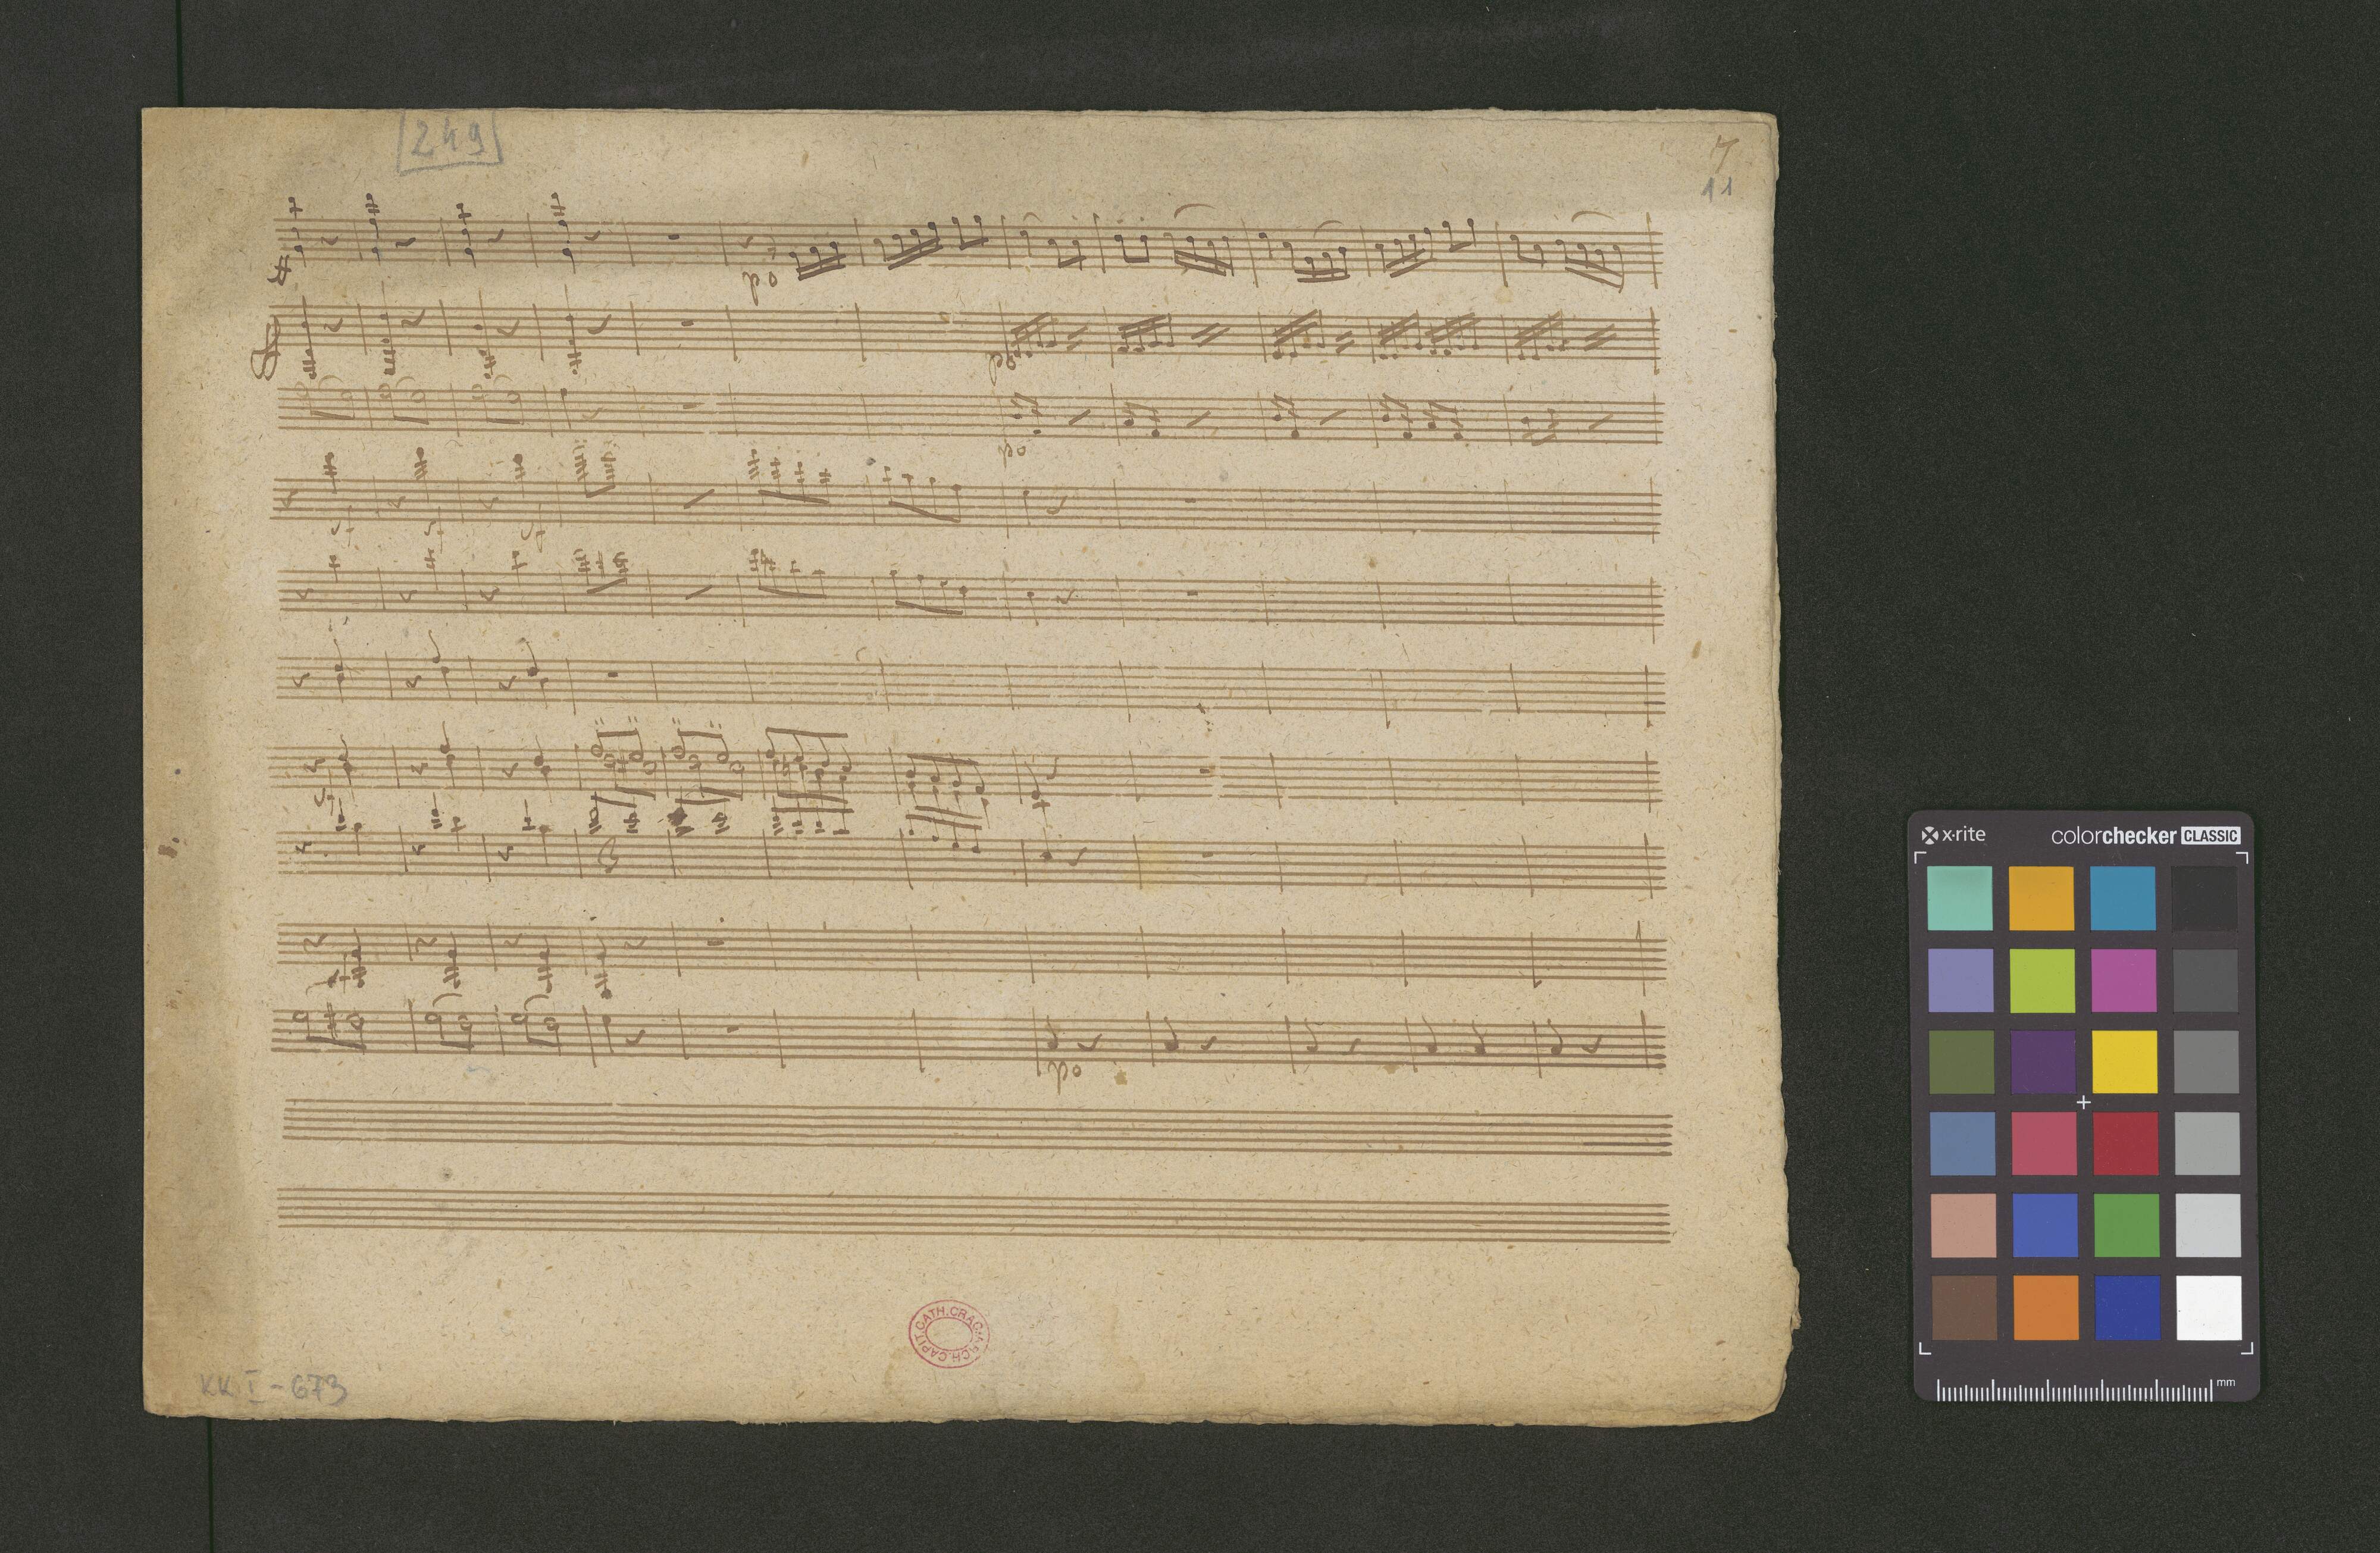 [249]
7
11
po
po
po
sf sf sf
sf
po
CAPIT.CATH.CRAC. ARCH.
KK I-673
x-rite colorchecker CLASSIC
mm